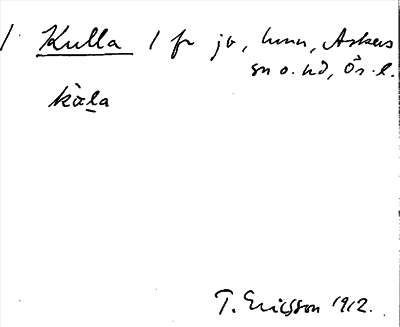 1 Kulla 1 fr jo, hmn, Askers
sn o. hd, Ör. l.
kàla
T. Ericsson 1912.